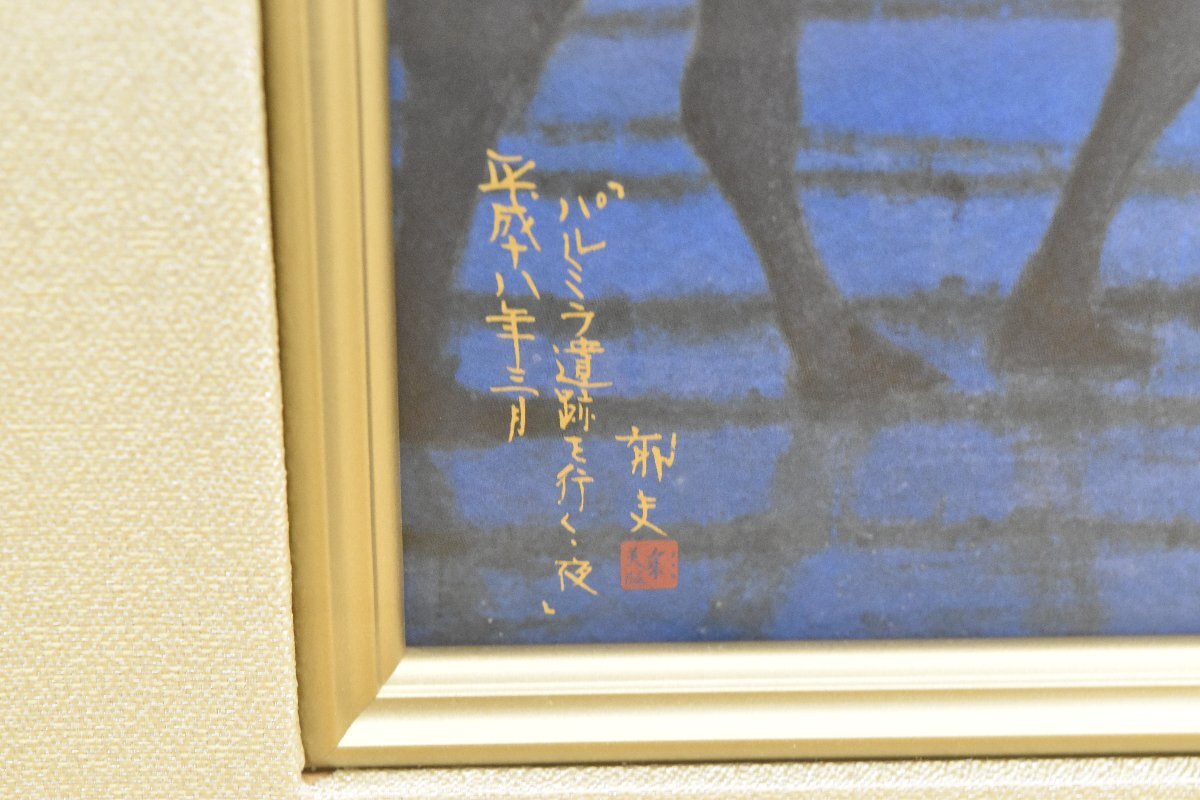 平成十八年三月
『パルミラ遺跡を行く・夜』
郁夫